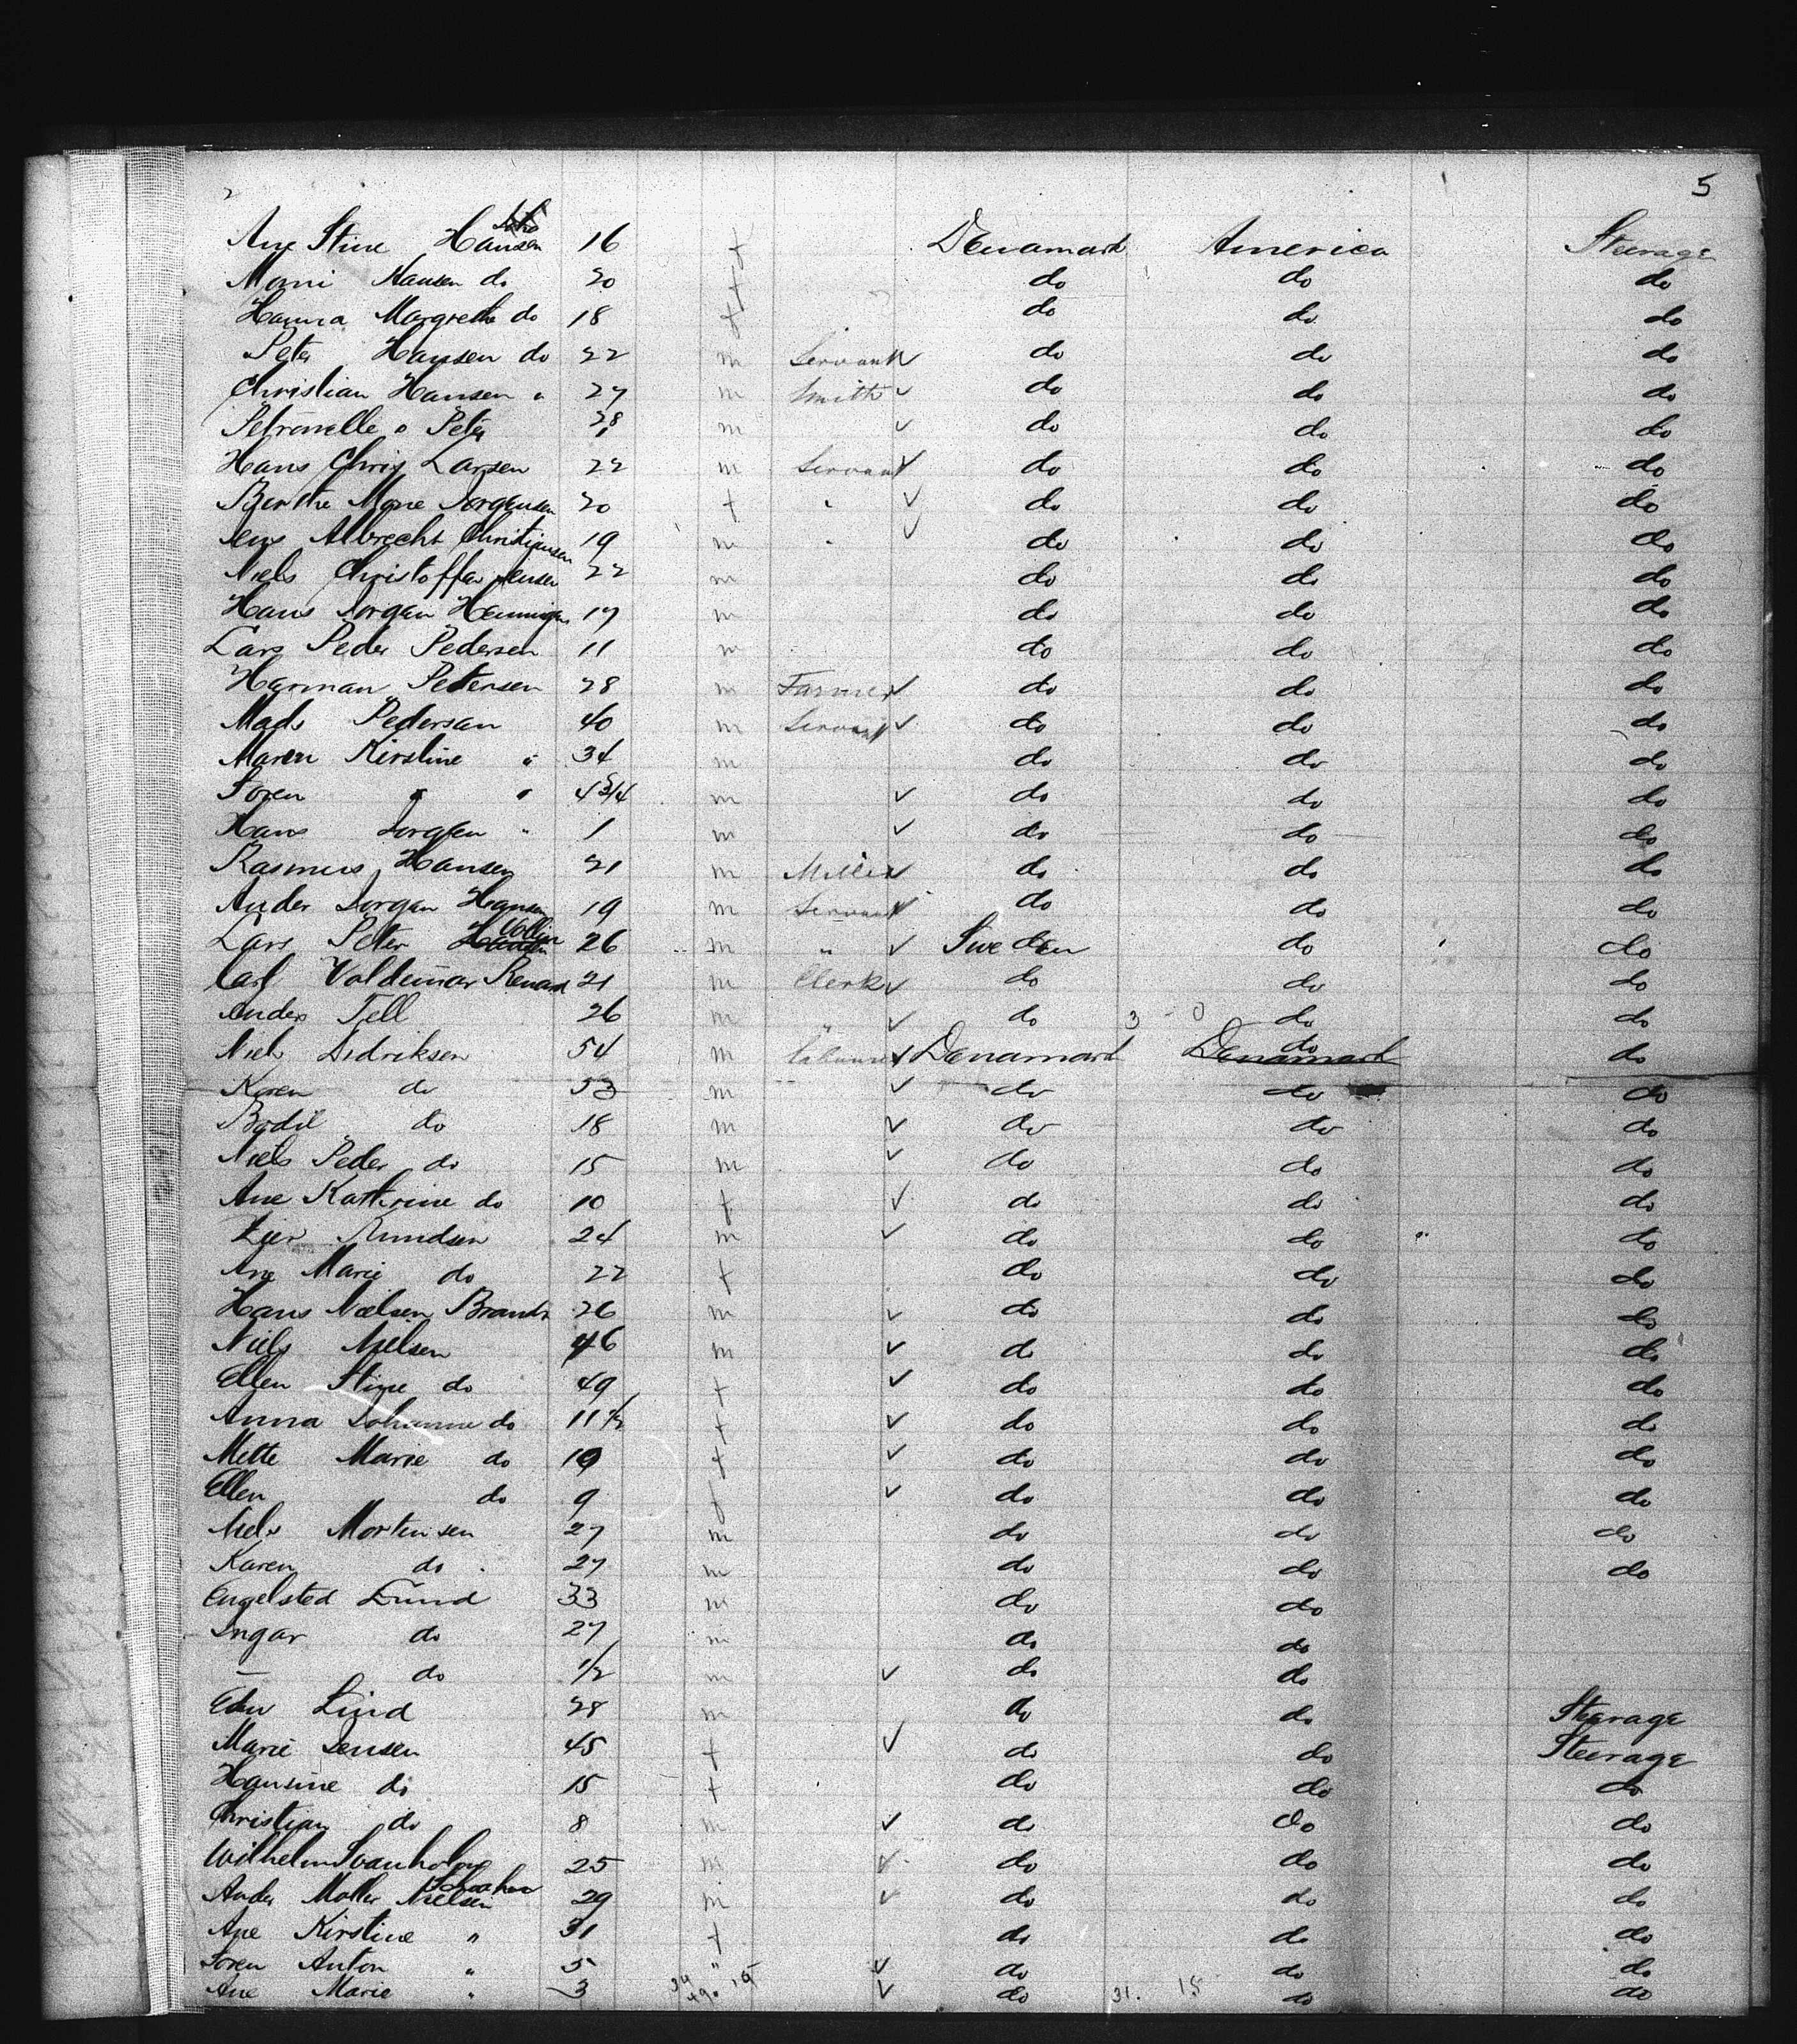 5
Ane Stine Hansen 16 f Denamark America Steerage
Marri Hansen do 20 f do do do
Hanna Margrethe do 18 f do do do
Peter Hansen do 22 m Servant do do do
Christian Hansen " 27 m Smith do do do
Petronelle " Peter 28 m do do do
Hans Chris Larsen 22 m Servant do do do
Berthe Marie Jorgensen 20 f " do do do
Jens Albrecht Christiansen 19 m " do do do
Niels Christoffer Jensen 22 m do do do
Hans Jorgen Henningsen 17 m do do do
Lars Peder Pedersen 11 m do do do
Harman Petersen 28 m Farmer do do do
Mads Pedersen 40 m Servant do do do
Maren Kirstine " 34 m do do do
Soren " " 4 3/4 m do do do
Hans Jorgen " 1 m do do do
Rasmus Hansen 21 m Miller do do do
Ander Jorgen Hansen 19 m Servant do do do
Lars Peter 26 m " Sweden do do
Carl Valdemar 21 m Clerk do do do
Anders Tell 26 m " do do do
Niels Didriksen 54 m Denamark Denamark do do
Karen do 53 m do do do
Bodil do 18 m do do do
Niels Peder do 15 m do do do
Ane Kathrine do 10 f do do do
Amundsen 24 m do do do
Ane Marie do 22 f do do do
Hans Nielsen Brandt 26 m do do do
Niels Nielsen 46 m do do do
Ellen Stine do 49 f do do do
Anna Johanne do 11 1/2 f do do do
Mette Marie do 10 f do do do
Ellen do 9 f do do do
Niels Mortensen 27 m do do do
Karen do 27 m do do do
Engelsted Lund 33 m do do
Ingar do 27 m do do
— do 1/2 m do do
Lind 28 m do do Steerage
Marie Jensen 45 f do do Steerage
Hansine do 15 f do do do
Christian do 8 m do do do
Wilhelm Svanholm 25 m do do do
Ander Moller Nielsen 29 m do do do
Ane Kirstine " 31 f do do do
Soren Anton " 5 " do do do
Ane Marie " 3 do 31. 15 do do